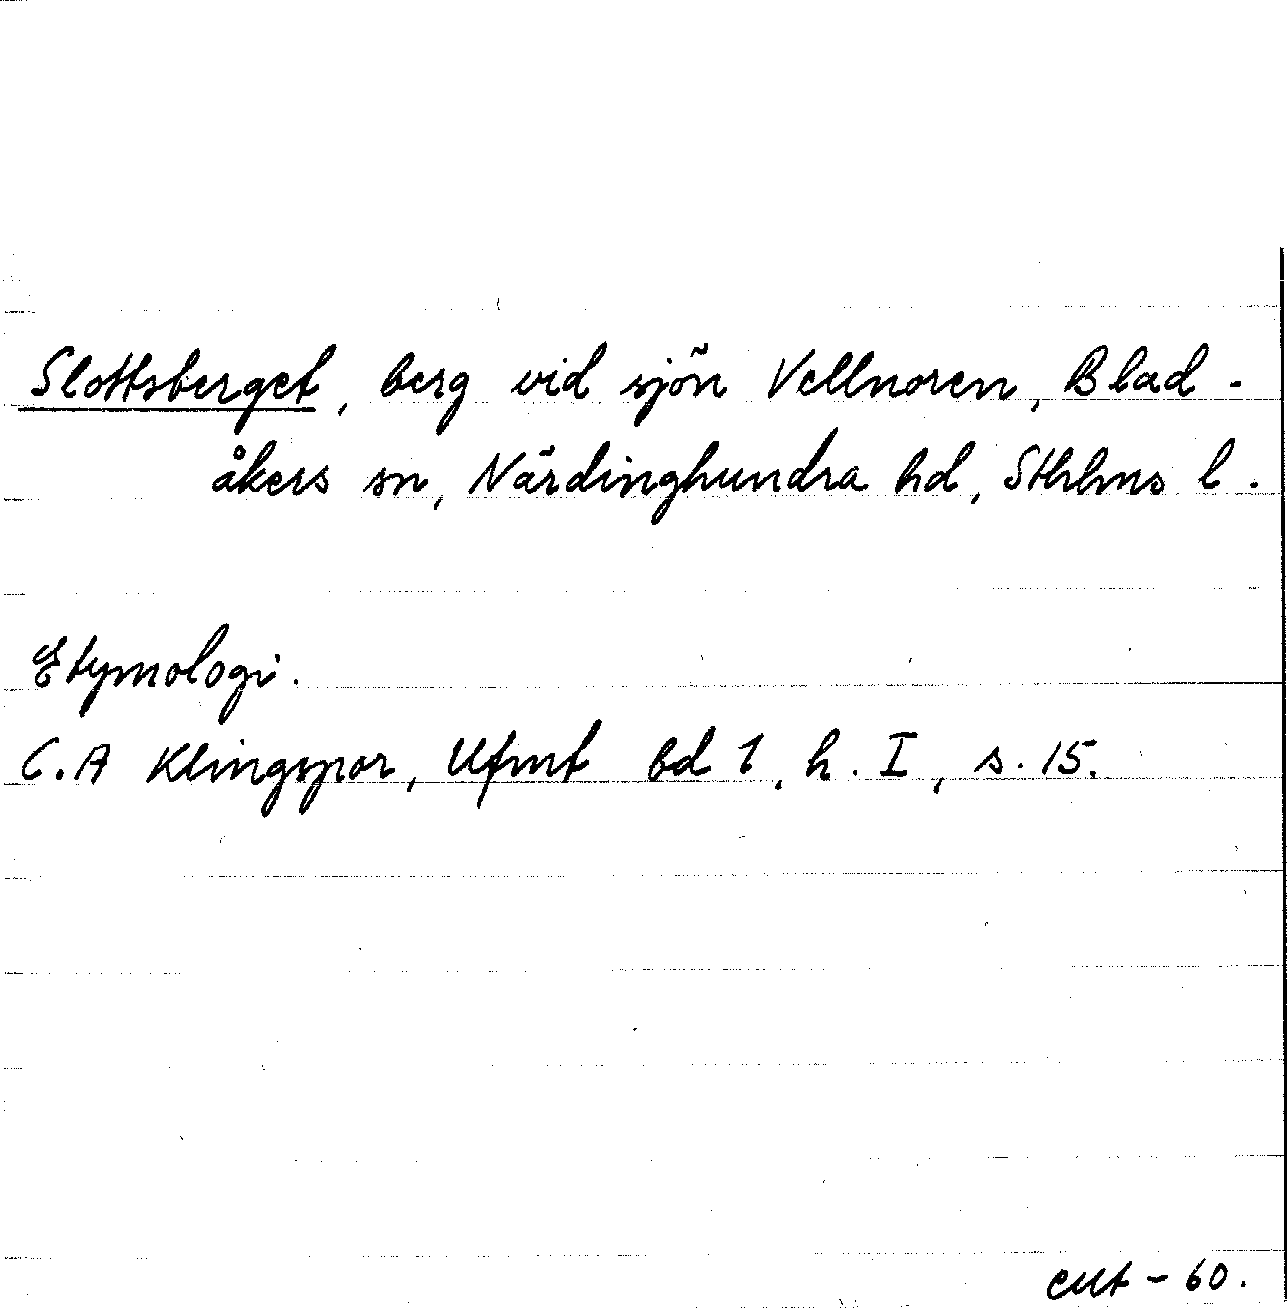 Slottsberget, berg vid sjön Vellnoren, Blad-
åkers sn, Närdinghundra hd, Sthlms l.
Etymologi.
C.A Klingspor, Ufmt bd 1, h. I, s. 15.
- 60.